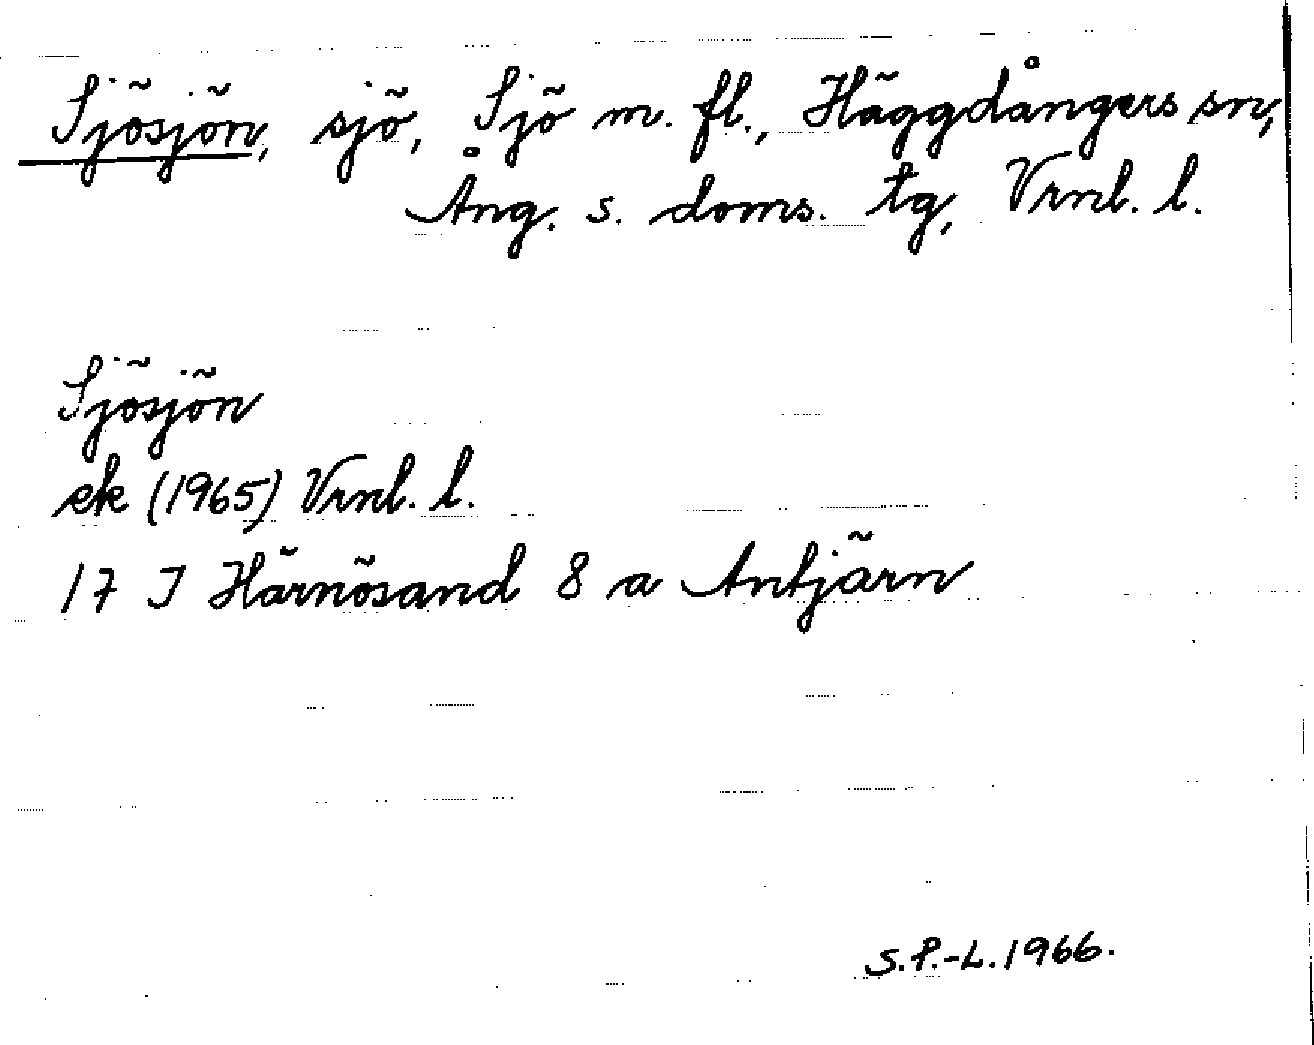 Sjösjön, sjö, Sjö m. fl., Häggdångers sn,
Ång. s. doms. tg, Vrnl. l.
Sjösjön
ek (1965) Vrnl. l.
17 J Härnösand 8 a Antjärn
S.P.-L. 1966.